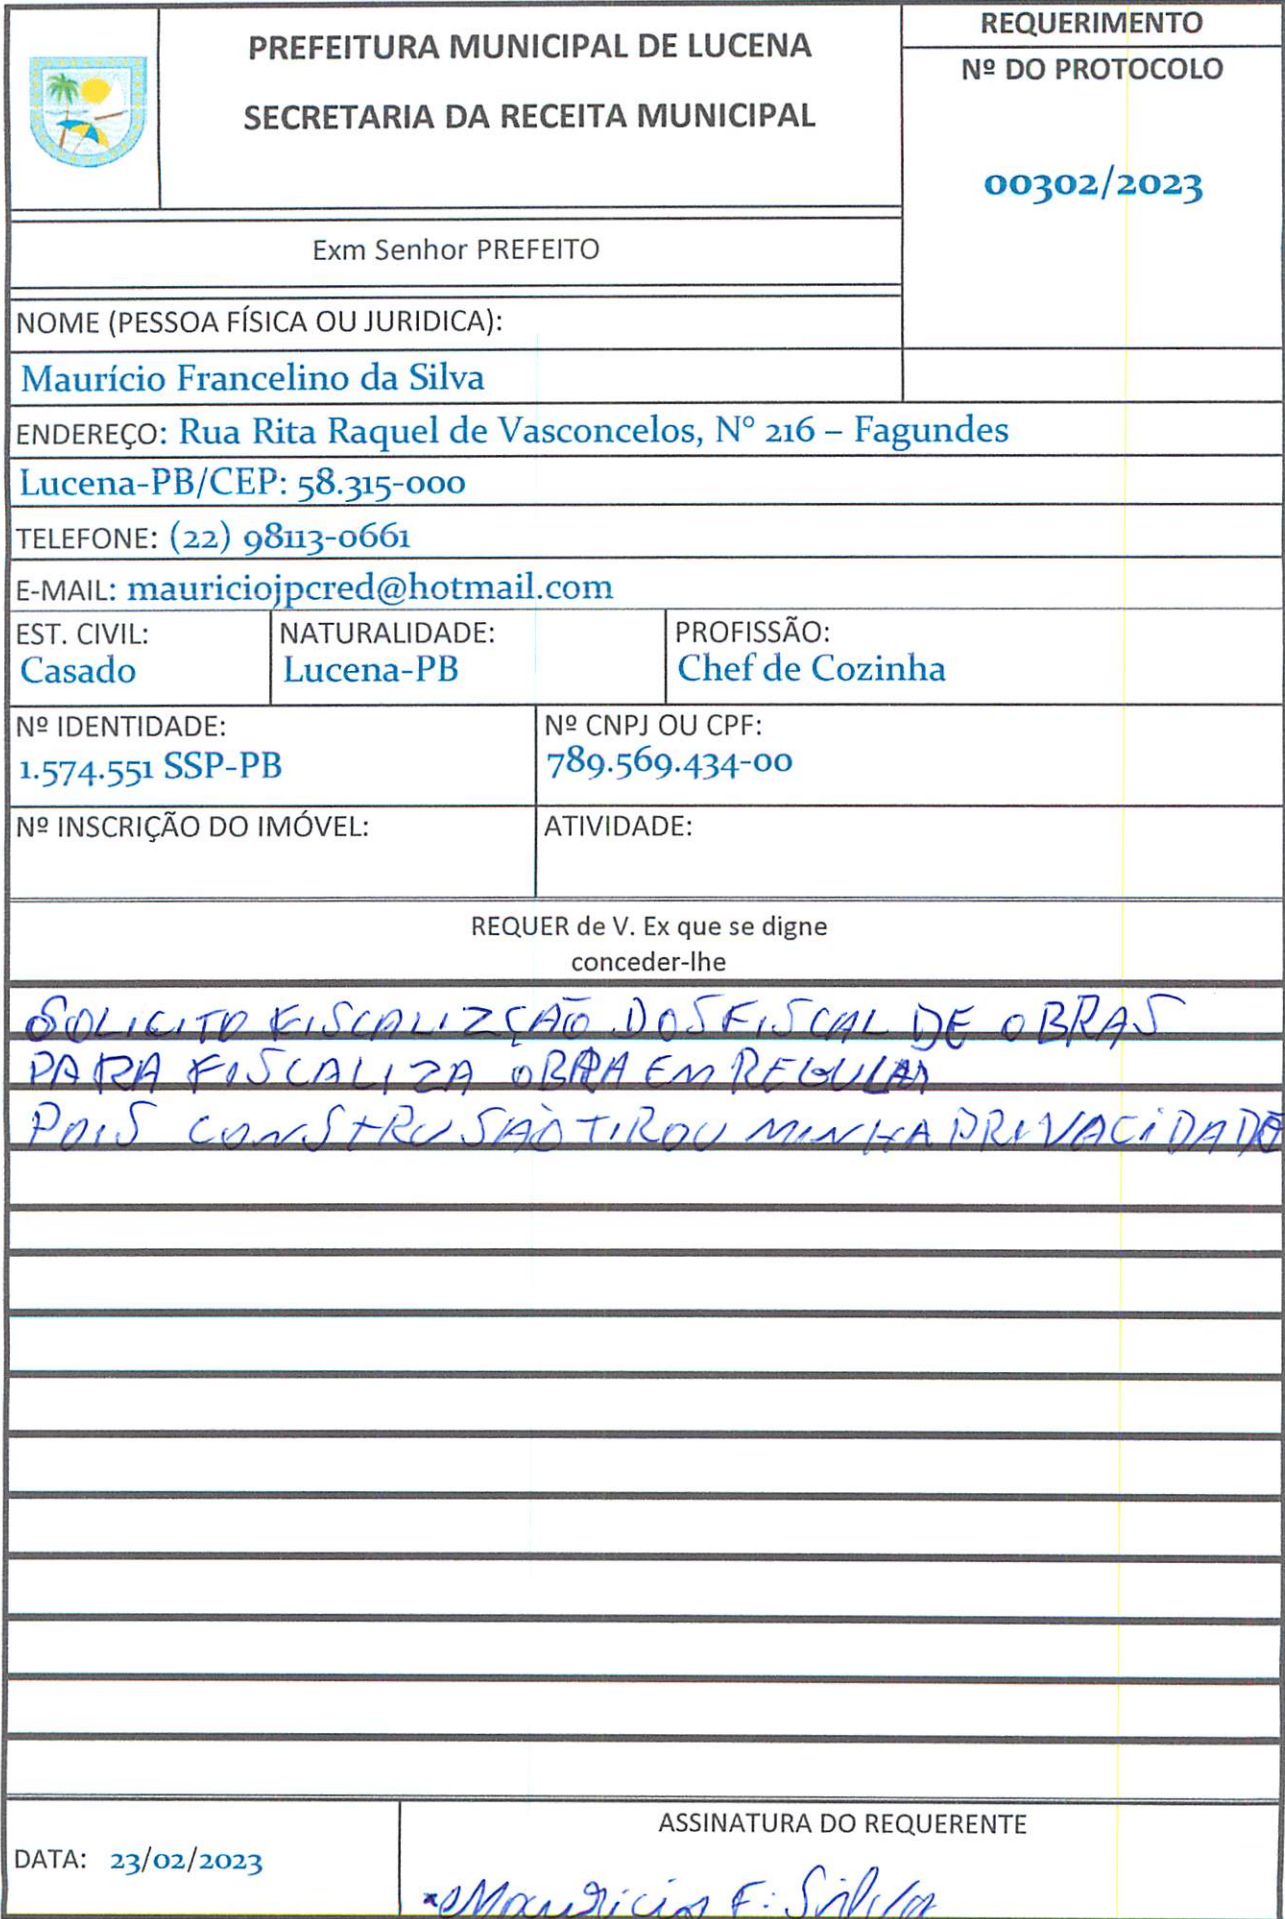 PREFEITURA MUNICIPAL DE LUCENA
SECRETARIA DA RECEITA MUNICIPAL
REQUERIMENTO
Nº DO PROTOCOLO
00302/2023
Exm Senhor PREFEITO
NOME (PESSOA FÍSICA OU JURIDICA):
Maurício Francelino da Silva
ENDEREÇO: Rua Rita Raquel de Vasconcelos, N° 216 – Fagundes
Lucena-PB/CEP: 58.315-000
TELEFONE: (22) 98113-0661
E-MAIL: mauriciojpcred@hotmail.com
EST. CIVIL:
Casado
NATURALIDADE:
Lucena-PB
PROFISSÃO:
Chef de Cozinha
Nº IDENTIDADE:
1.574.551 SSP-PB
Nº CNPJ OU CPF:
789.569.434-00
Nº INSCRIÇÃO DO IMÓVEL:
ATIVIDADE:
REQUER de V. Ex que se digne
conceder-lhe
SOLICITO FISCALIZÇÃO DOS FISCAL DE OBRAS
PARA FISCALIZA OBRA EM REGULAR
POIS CONSTRUSÃO TIROU MINHA PRIVACIDADE
DATA: 23/02/2023
ASSINATURA DO REQUERENTE
Mauricio F. Silva